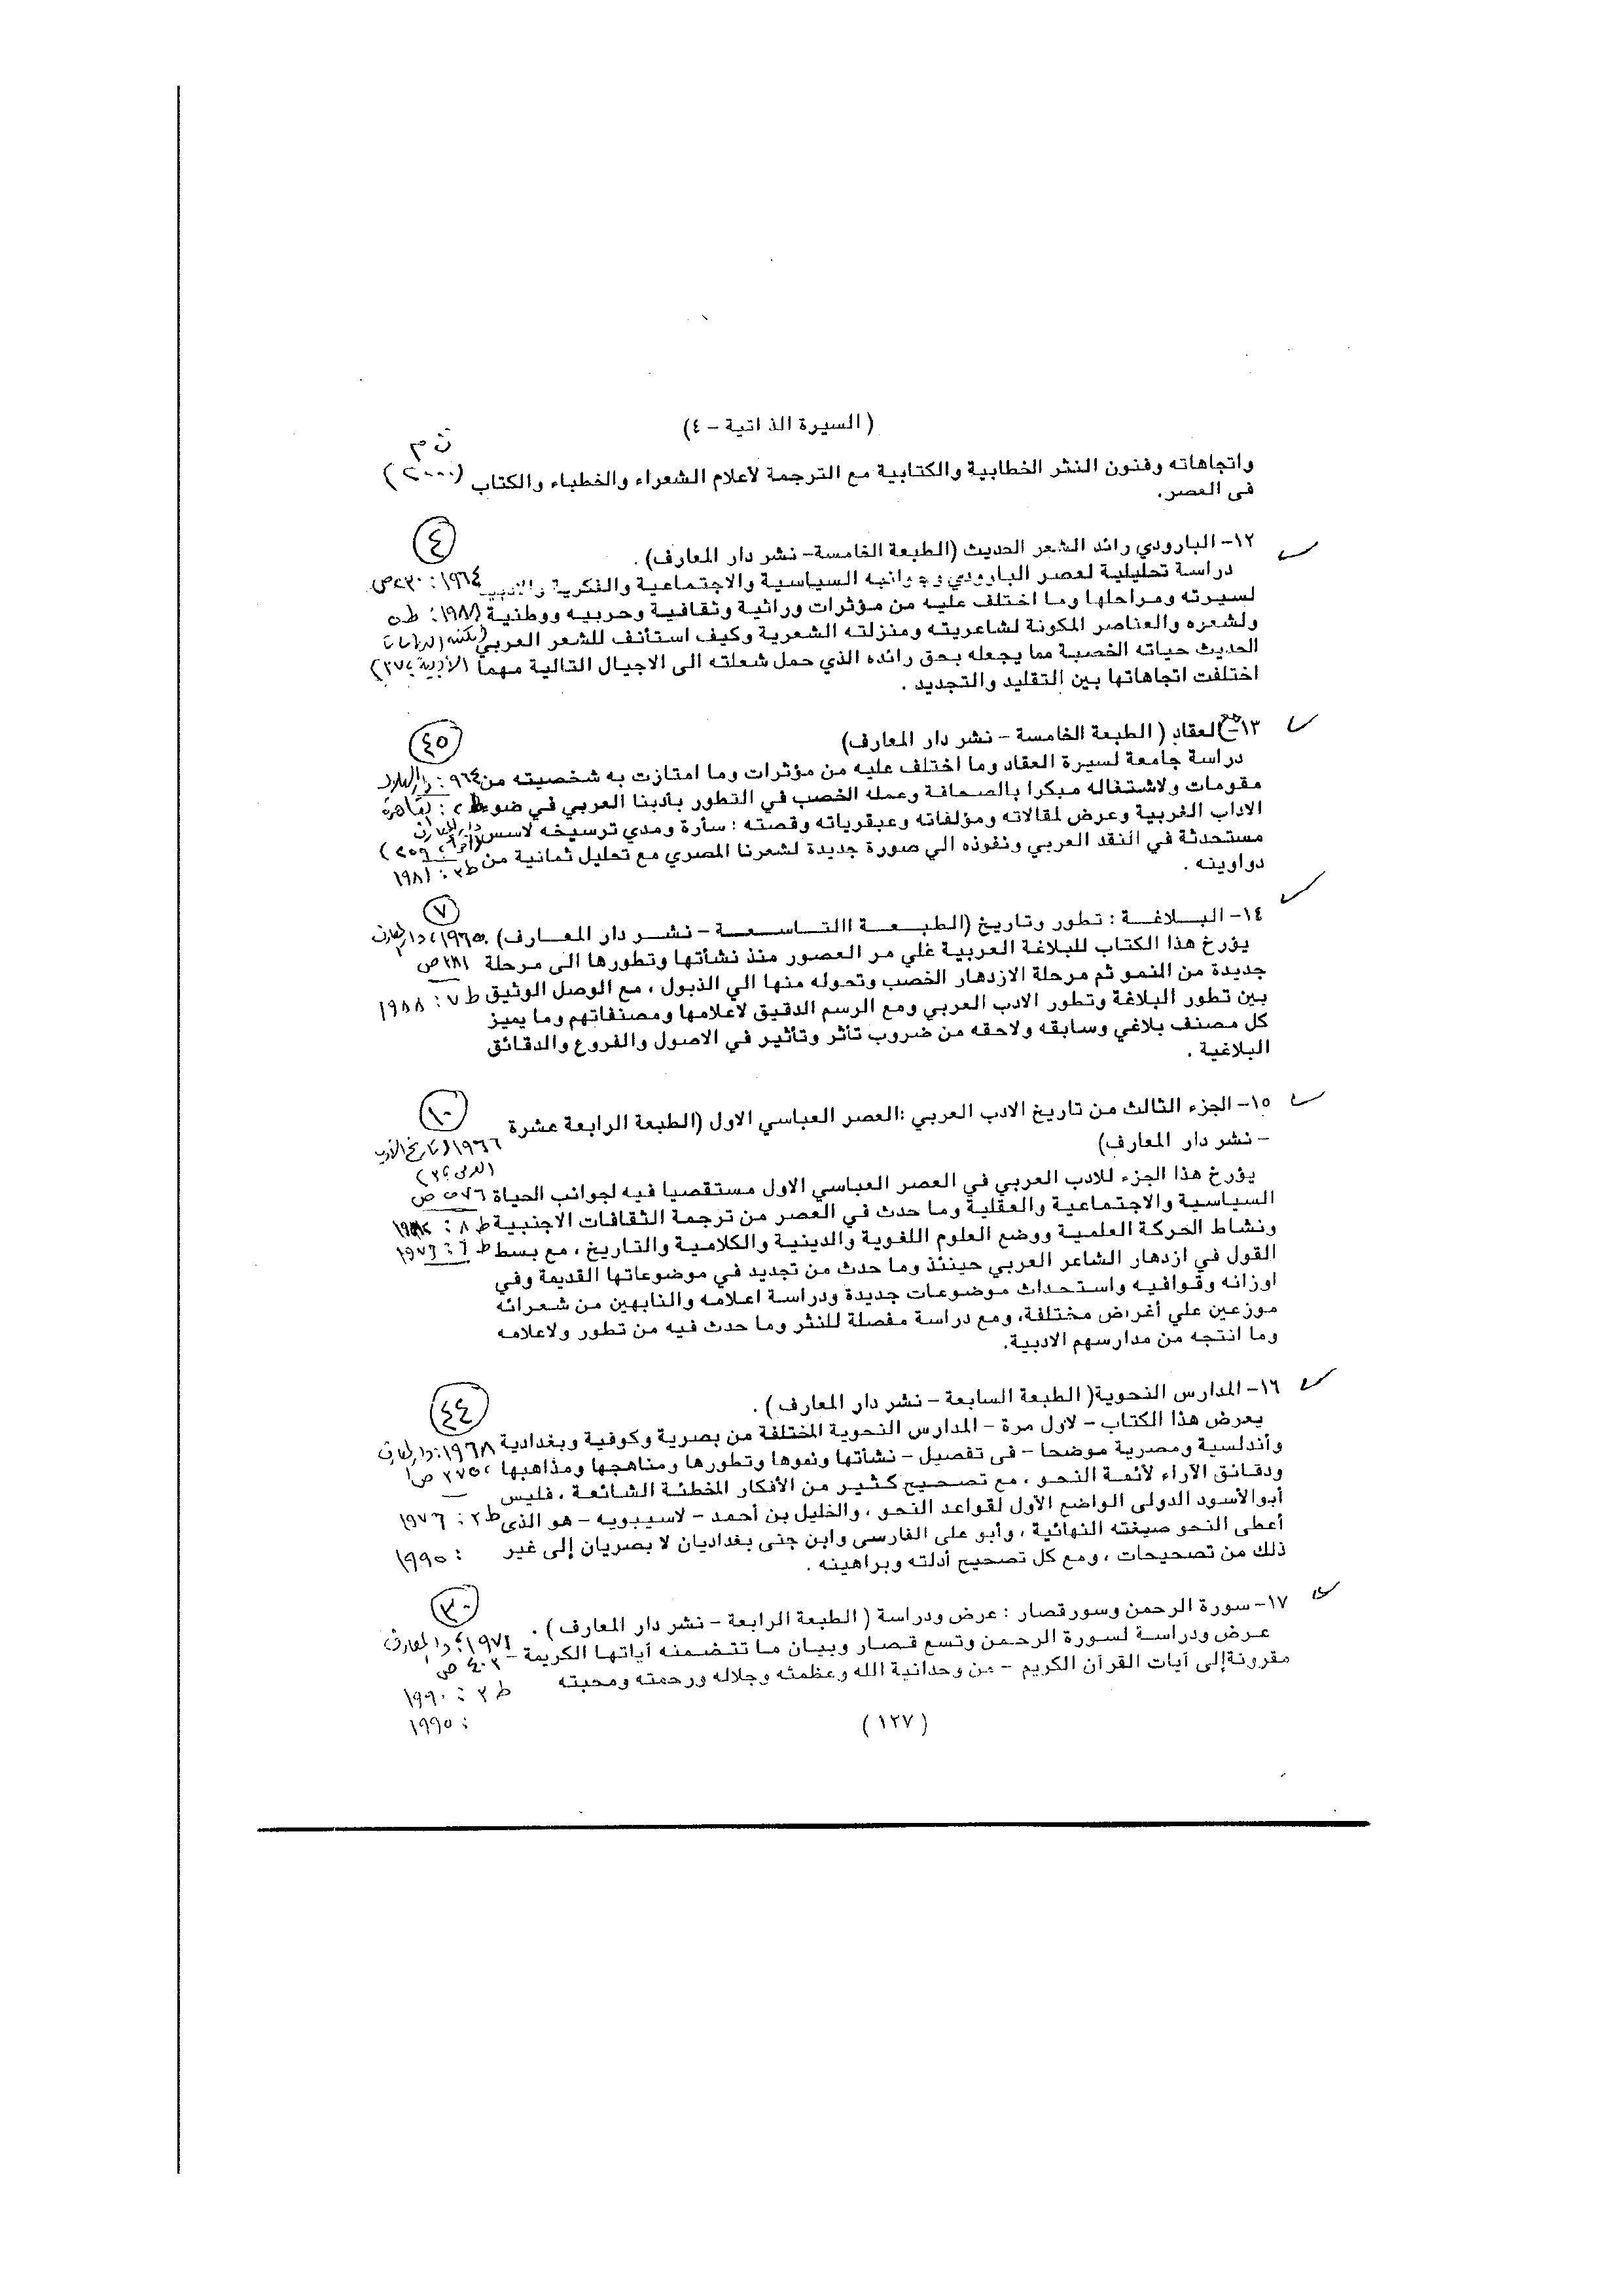 (السيرة الذاتية - ٤)
ش م
واتجاهاته وفنون النثر الخطابية والكتابية مع الترجمة لأعلام الشعراء والخطباء والكتاب (٢٠٠٠)
فى العصر.
٤
١٢- البارودي رائد الشعر الحديث (الطبعة الخامسة- نشر دار المعارف) .
دراسة تحليلية لعصر البارودي وجوانبه السياسية والاجتماعية والفكرية والادبية ١٩٦٤ : ٢٣٠ ص
لسيرته ومراحلها وما اختلف عليه من مؤثرات وراثية وثقافية وحربيه ووطنية ط٥ : ١٩٨٨
ولشعره والعناصر المكونة لشاعريته ومنزلته الشعرية وكيف استأنف للشعر العربي (مكتبة الدراسات
الحديث حياته الخصبة مما يجعله بحق رائده الذي حمل شعلته الى الاجيال التالية مهما الأدبية ، ٣٧)
اختلفت اتجاهاتها بين التقليد والتجديد .
٤٥
١٣- مع العقاد ( الطبعة الخامسة - نشر دار المعارف)
دراسة جامعة لسيرة العقاد وما اختلف عليه من مؤثرات وما امتازت به شخصيته من ٩٦٤ : دار الهلال
مقومات ولاشتغاله مبكرا بالصحافة وعمله الخصب في التطور بأدبنا العربي في ضوء ط٢ : القاهرة
الاداب الغربية وعرض لمقالاته ومؤلفاته وعبقرياته وقصته : سأرة ومدي ترسيخه لاسس دار المعارف
مستحدثة في النقد العربي ونفوذه الي صورة جديدة لشعرنا المصري مع تحليل ثمانية من (اقرأ ، ٢٥٩)
دواوينه . ط٣ : ١٩٨١
٧
١٤- البلاغة : تطور وتاريخ (الطبعة االتاسعة - نشر دار المعارف) . ١٩٦٥ ، دار المعارف
يؤرخ هذا الكتاب للبلاغة العربية غلي مر العصور منذ نشأتها وتطورها الى مرحلة ٣٨١ ص
جديدة من النمو ثم مرحلة الازدهار الخصب وتحوله منها الي الذبول ، مع الوصل الوثيق ط ٧ : ١٩٨٨
بين تطور البلاغة وتطور الادب العربي ومع الرسم الدقيق لاعلامها ومصنفاتهم وما يميز
كل مصنف بلاغي وسابقه ولاحقه من ضروب تأثر وتأثير في الاصول والفروع والدقائق
البلاغية .
١٠
١٥- الجزء الثالث من تاريخ الادب العربي :العصر العباسي الاول (الطبعة الرابعة عشرة
- نشر دار المعارف) ١٩٦٦ (تاريخ الأدب
العربى ، ٣)
يؤرخ هذا الجزء للادب العربي في العصر العباسي الاول مستقصيا فيه لجوانب الحياة ٥٧٦ ص
السياسية والاجتماعية والعقلية وما حدث في العصر من ترجمة الثقافات الاجنبية ط ٨ : ١٩٨٢
ونشاط الحركة العلمية ووضع العلوم اللغوية والدينية والكلامية والتاريخ ، مع بسط ط ٦ : ١٩٧٦
القول في ازدهار الشاعر العربي حينئذ وما حدث من تجديد في موضوعاتها القديمة وفي
اوزانه وقوافيه واستحداث موضوعات جديدة ودراسة اعلامه والنابهين من شعرائه
موزعين علي أغراض مختلفة، ومع دراسة مفصلة للنثر وما حدث فيه من تطور ولاعلامه
وما انتجه من مدارسهم الادبية.
٤٤
١٦- المدارس النحوية( الطبعة السابعة - نشر دار المعارف ) .
يعرض هذا الكتاب - لاول مرة - المدارس النحوية المختلفة من بصرية وكوفية وبغدادية ١٩٦٨ : دار المعارف
وأندلسية ومصرية موضحا - فى تفصيل - نشأتها ونموها وتطورها ومناهجها ومذاهبها ، ٣٧٥ ص
ودقائق الآراء لأئمة النحو ، مع تصحيح كثير من الأفكار المخطئة الشائعة ، فليس
أبو الأسود الدولى الواضع الأول لقواعد النحو ، والخليل بن أحمد - لاسيبويه - هو الذى ط ٣ : ١٩٧٦
أعطى النحو صيغته النهائية ، وأبو على الفارسى وابن جنى بغداديان لا بصريان إلى غير : ١٩٩٥
ذلك من تصحيحات ، ومع كل تصحيح أدلته وبراهينه .
٣٠
١٧- سورة الرحمن وسور قصار : عرض ودراسة ( الطبعة الرابعة - نشر دار المعارف ) .
عرض ودراسة لسورة الرحمن وتسع قصار وبيان ما تتضمنه أياتها الكريمة - ١٩٧١ ، دار المعارف
مقرونة إلى أيات القرآن الكريم - من وحدانية الله وعظمته وجلاله ورحمته ومحبته ٤٠٢ ص
ط ٣ : ١٩٩٠
: ١٩٩٥
( ١٢٧ )